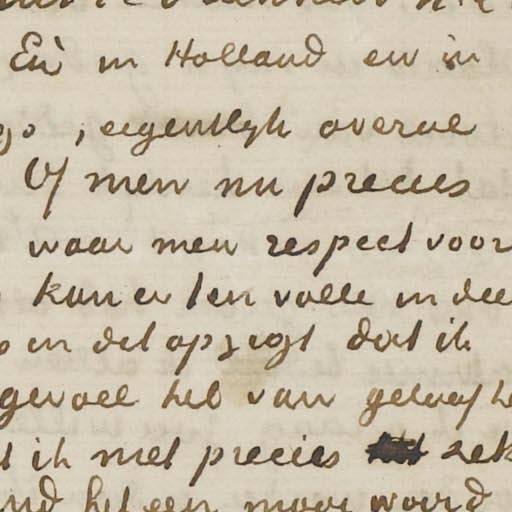 En in Holland en in
go, eigentlyk overal
Of men nu precies
waar men respect voor
kan er ten volle in dee
in dat opzigt dat ik
gevoel heb van geloof he
t ik met precies zek
nd het een mooi woord